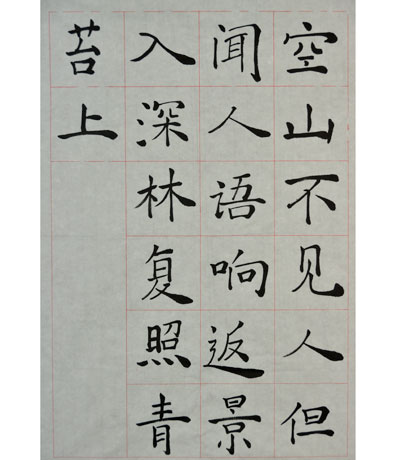 空山不见人但
闻人语响返景
入深林复照青
苔上